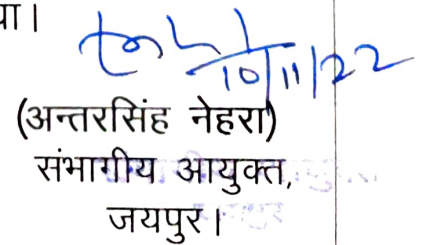 या।
10/11/22
(अन्तरसिंह नेहरा)
संभागीय आयुक्त,
जयपुर।